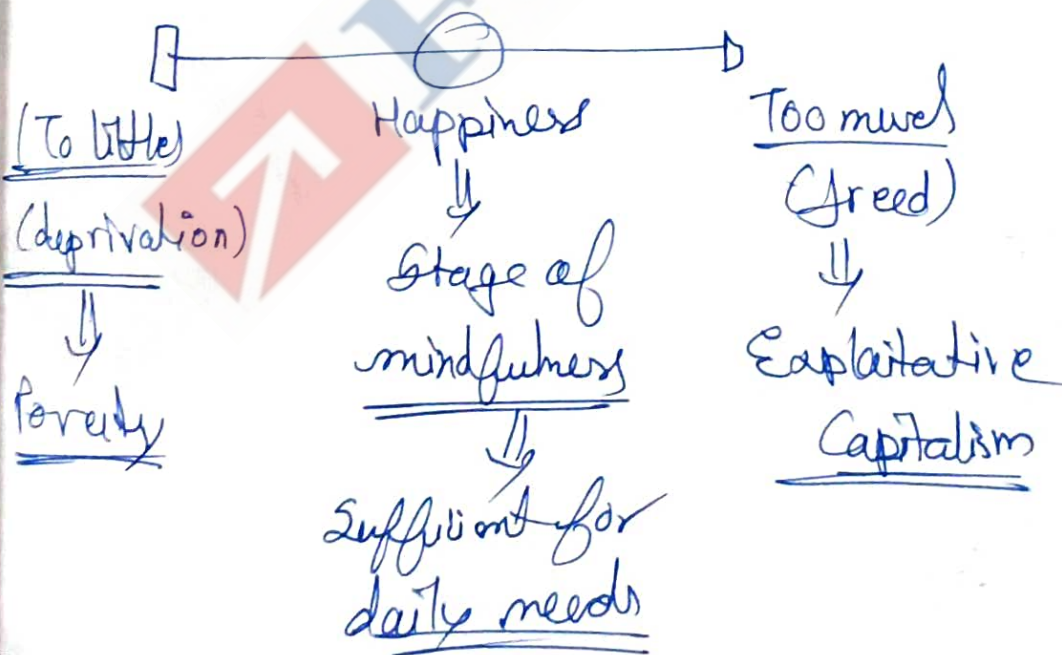 (To little)
(deprivation)
⇓
Poverty
Happiness
⇓
Stage of
mindfulness
⇓
Sufficient for
daily needs
Too much
(Greed)
⇓
Exploitative
Capitalism